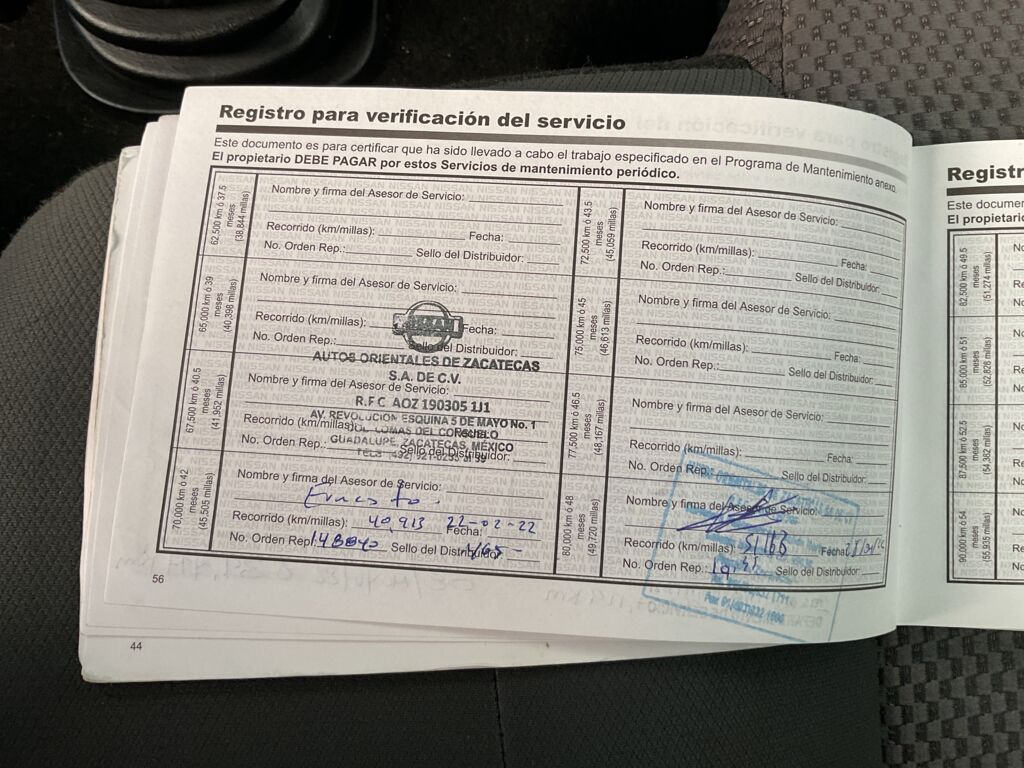 Registro para verificación del servicio
Este documento es para certificar que ha sido llevado a cabo el trabajo especificado en el Programa de Mantenimiento anexo.
El propietario DEBE PAGAR por estos Servicios de mantenimiento periódico.
62,500 km ó 37.5
meses
(38,844 millas)
Nombre y firma del Asesor de Servicio:
Recorrido (km/millas): Fecha:
No. Orden Rep.: Sello del Distribuidor:
65,000 km ó 39
meses
(40,398 millas)
Nombre y firma del Asesor de Servicio:
Recorrido (km/millas): Fecha:
No. Orden Rep.: Sello del Distribuidor:
NISSAN
AUTOS ORIENTALES DE ZACATECAS
S.A. DE C.V.
R.F.C AOZ 190305 1J1
AV. REVOLUCIÓN ESQUINA 5 DE MAYO No. 1
COL. LOMAS DEL CONSUELO
GUADALUPE, ZACATECAS, MÉXICO
67,500 km ó 40.5
meses
(41,952 millas)
Nombre y firma del Asesor de Servicio:
Recorrido (km/millas): Fecha:
No. Orden Rep.: Sello del Distribuidor:
70,000 km ó 42
meses
(45,505 millas)
Nombre y firma del Asesor de Servicio:
Ernesto.
Recorrido (km/millas): 40,913 Fecha: 22-02-22
No. Orden Rep.: Sello del Distribuidor:
72,500 km ó 43.5
meses
(45,059 millas)
Nombre y firma del Asesor de Servicio:
Recorrido (km/millas): Fecha:
No. Orden Rep.: Sello del Distribuidor:
75,000 km ó 45
meses
(46,613 millas)
Nombre y firma del Asesor de Servicio:
Recorrido (km/millas): Fecha:
No. Orden Rep.: Sello del Distribuidor:
77,500 km ó 46.5
meses
(48,167 millas)
Nombre y firma del Asesor de Servicio:
Recorrido (km/millas): Fecha:
No. Orden Rep.: Sello del Distribuidor:
80,000 km ó 48
meses
(49,720 millas)
Nombre y firma del Asesor de Servicio:
Recorrido (km/millas): Fecha:
No. Orden Rep.: Sello del Distribuidor:
56
44
Registr
Este documen
El propietario
82,500 km ó 49.5
meses
(51,274 millas)
85,000 km ó 51
meses
(52,828 millas)
87,500 km ó 52.5
meses
(54,382 millas)
90,000 km ó 54
meses
(55,935 millas)